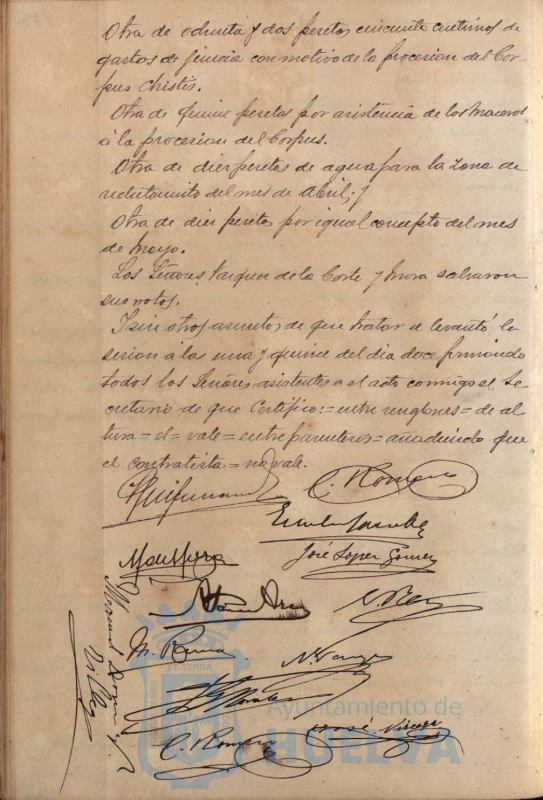 Otra de ochenta y dos pesetas cincuenta centimos de
gastos de fiancia con motivo de la procesion del Cor-
pus Christis.
Otra de quince pesetas por asistencia de los Maceros
á la procesion del Corpus.
Otra de diez pesetas de agua para la Zona de
reclutamiento del mes de Abril; y
Otra de diez pesetas por igual concepto del mes
de Mayo.
Los Señores Vazquez de la Corte y Mora salvaron
sus votos.
Y sin otros asuntos de que tratar se levantó la
sesion á las una y quince del dia doce firmando
todos los Señores asistentes a el acto conmigo el Se-
cretario de que Certifico:=entre renglones=de al-
tura=el=vale=entre parentesis=añadiendo que
el contratista=no vale.
C. Romero
José Lopez Gomez
M. Mora
C. Romero
José
Ayuntamiento de
HUELVA